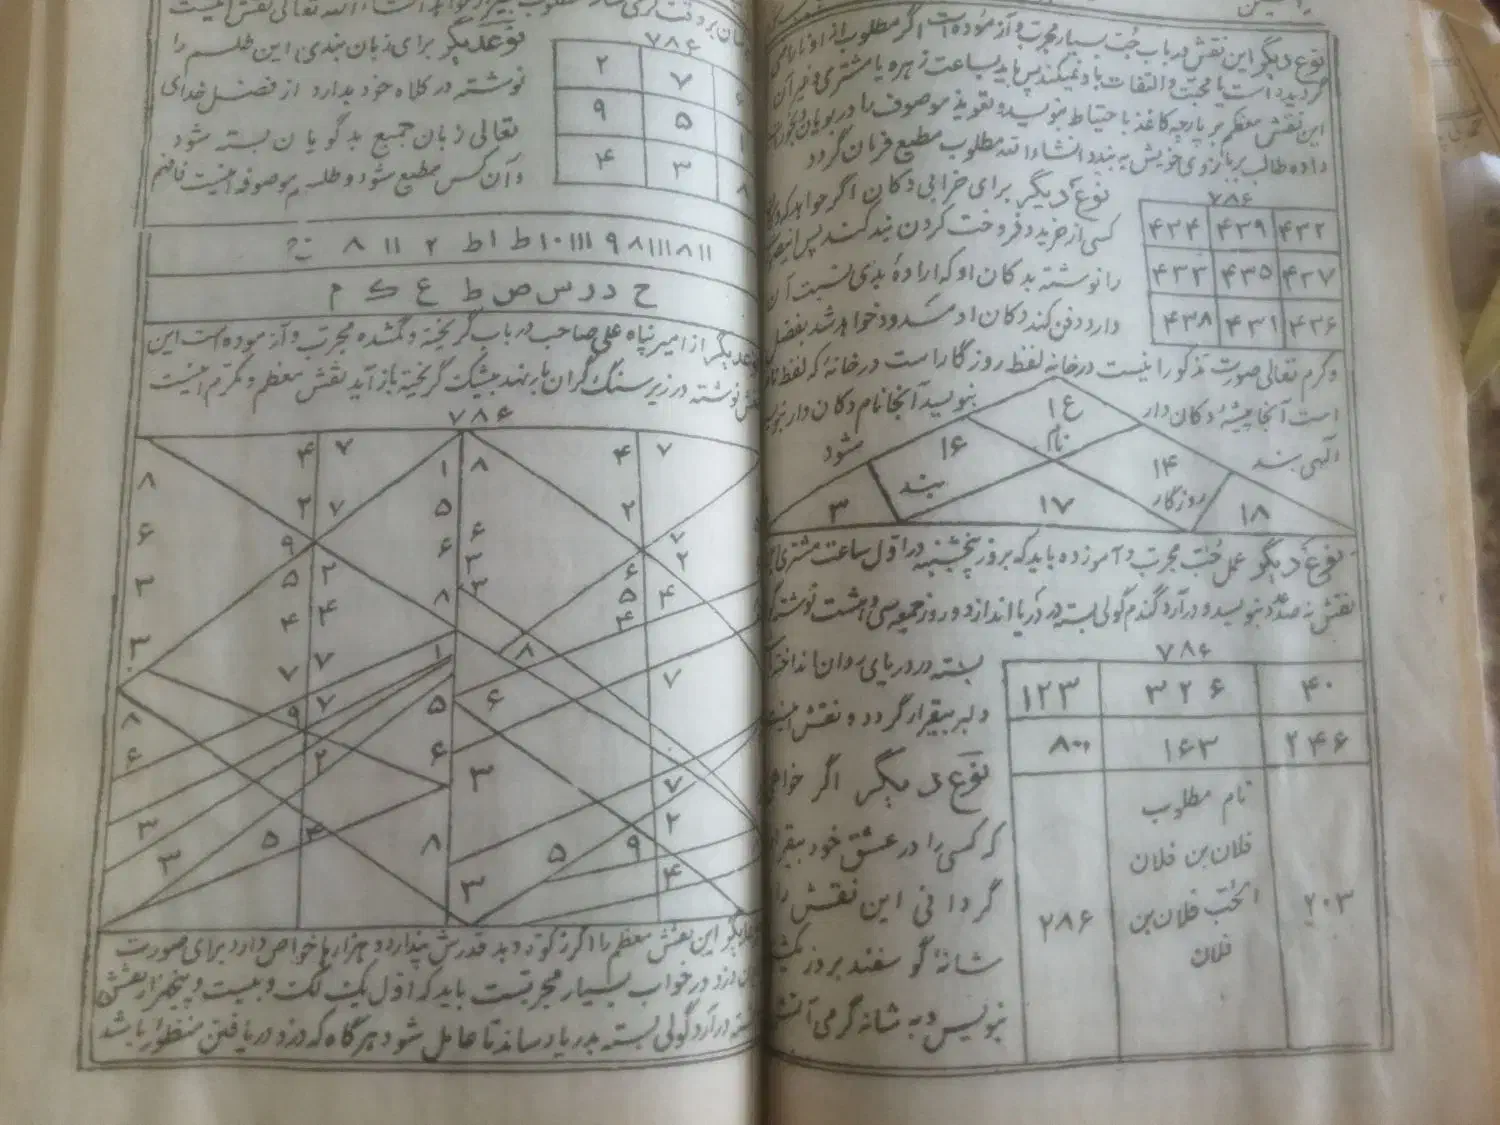 نوع دیگر این نقش در باب حُب بسیار مجرب و آزموده است اگر مطلوب از او ناراض
گردیده است یا محبت و التفات یاد نمیکند پس باید بساعت زهره یا مشتری و غیر آن
این نقش معظم بر پارچه کاغذ با حتیاط بنویسد و تعویذ موصوف را در
داده طالب بر بازوی خویش به بندد انشاءالله مطلوب مطیع فرمان گردد
نوع دیگر برای خرابی دکان اگر خواهد که
کسی از خرید و فروخت کردن بند کند پس
را نوشته بدکان او که ارادهٔ بدی نسبت آن
دارد دفن کند دکان او مسدود خواهد شد بفضل
۷۸۶
۴۳۴ ۴۳۹ ۴۳۲
۴۳۳ ۴۳۵ ۴۳۷
۴۳۸ ۴۳۱ ۴۳۶
و کرم تعالی صورت مذکور اینست در خانه لفظ روزگار است در خانه که لفظ نام
است آنجا پیشهٔ دکان دار
بنویسد آنجا نام دکان دار
الٰهی بند
شود
۱۶
نام
۱۶
بند
۳
۱۷
۱۴
روزگار
۱۸
نوع دیگر عمل حُب مجرب و آموزده باید که بروز پنجشنبه در اول ساعت مشتری
نقش نه صد عدد بنویسد و در آرد گندم گولی بسته در دریا اندازد و روز جمعه سی و هشت نوشته
بسته در دریای روان
دلبر بیقرار گردد و نقش
۷۸۶
۱۲۳ ۳۲۶ ۴۰
۸۰۱ ۱۶۳ ۲۴۶
۲۸۶
نام مطلوب
فلان بن فلان
الحُب فلان بن
فلان
۲۰۳
نوع دیگر اگر خواهی
که کسی را در عشق خود بیقرار
گردانی این نقش را
شانهٔ گوسفند بروز
بنویس و به شانه گرمی آتش
نوع دیگر برای زبان بندی این طلسم را
نوشته در کلاه خود بدارد از فضل خدای
تعالی زبان جمیع بدگویان بسته شود
و آن کس مطیع شود و طلسم موصوف اینست فافهم
۷۸۶
۲ ۷ ۶
۹ ۵ ۱
۴ ۳ ۸
۸ ۱۱ ۲ ط۱ ط ۱۰۱۱۱ ۹ ۸۱۱۱۸۱۱
ح د ر س ص ط ع ک م
نوع دیگر از امیر پناه علی صاحب در باب گریخته و گمشده مجرب و آزموده است این
نقش نوشته در زیر سنگ گران بار بنهد بیشک گریخته باز آید نقش معظم و مکرم اینست
۷۸۶
۸ ۴ ۷ ۱ ۸ ۴ ۷
۶ ۲ ۷ ۵ ۶ ۲ ۷
۳ ۹ ۵ ۲ ۶ ۳ ۳ ۶ ۲
۳ ۴ ۴ ۸ ۵ ۴ ۴
۷ ۷ ۱ ۸ ۷
۸ ۹ ۷ ۵ ۶
۶ ۲ ۶ ۳ ۷
۳ ۵ ۴ ۲
۳ ۸ ۳ ۵ ۹ ۴
نوع دیگر این نقش معظم را اگر زکوٰة دهد قدرش پندارد و هزارها خواص دارد برای صورت
دزد در خواب بسیار مجربست باید که اول یک لک و بیست و پنجهزار نقش
بسته در آرد گولی بسته بدریا رساند تا عامل شود هرگاه که دزد دریافتن منظور باشد